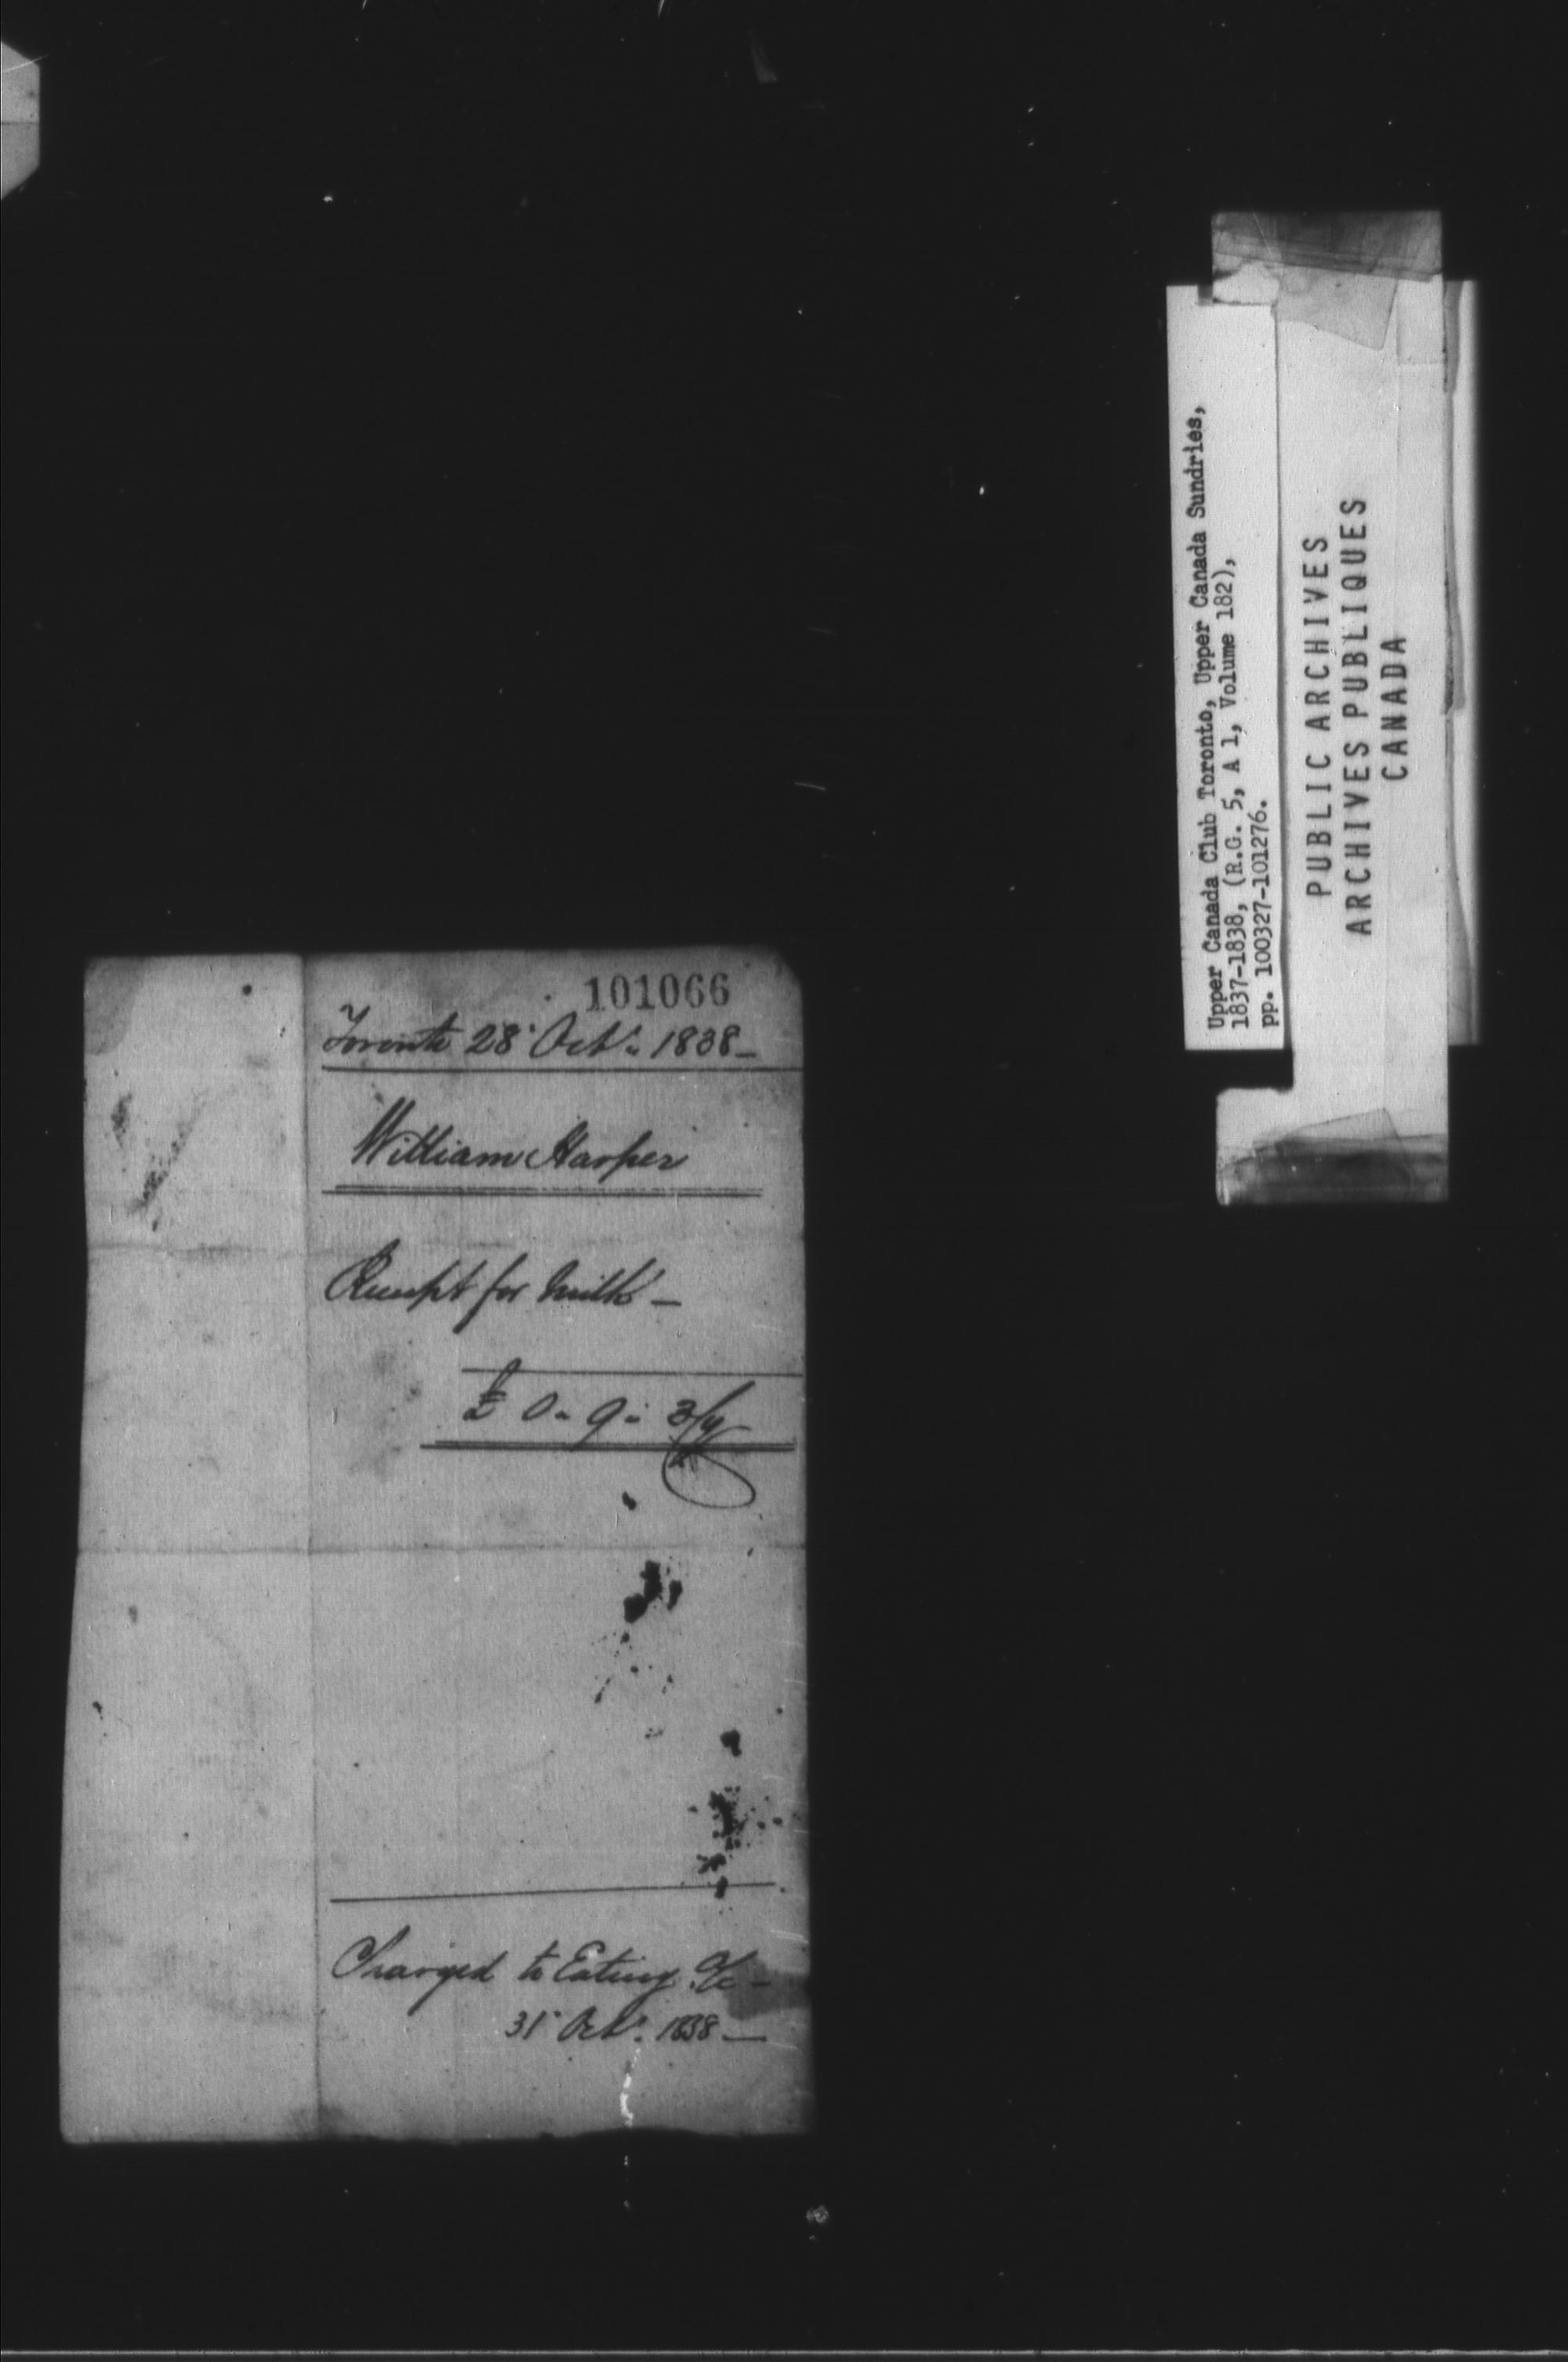 101066
Toronto 28 Octr. 1838 -
William Harper
Receipt for Milk -
£ 0 .. 9 .. 3/4
Charged to Eating A/c -
31 Octr. 1838 -
Upper Canada Club Toronto, Upper Canada Sundries,
1837-1838, (R.G. 5, A 1, Volume 182),
pp. 100327-101276.
PUBLIC ARCHIVES
ARCHIVES PUBLIQUES
CANADA